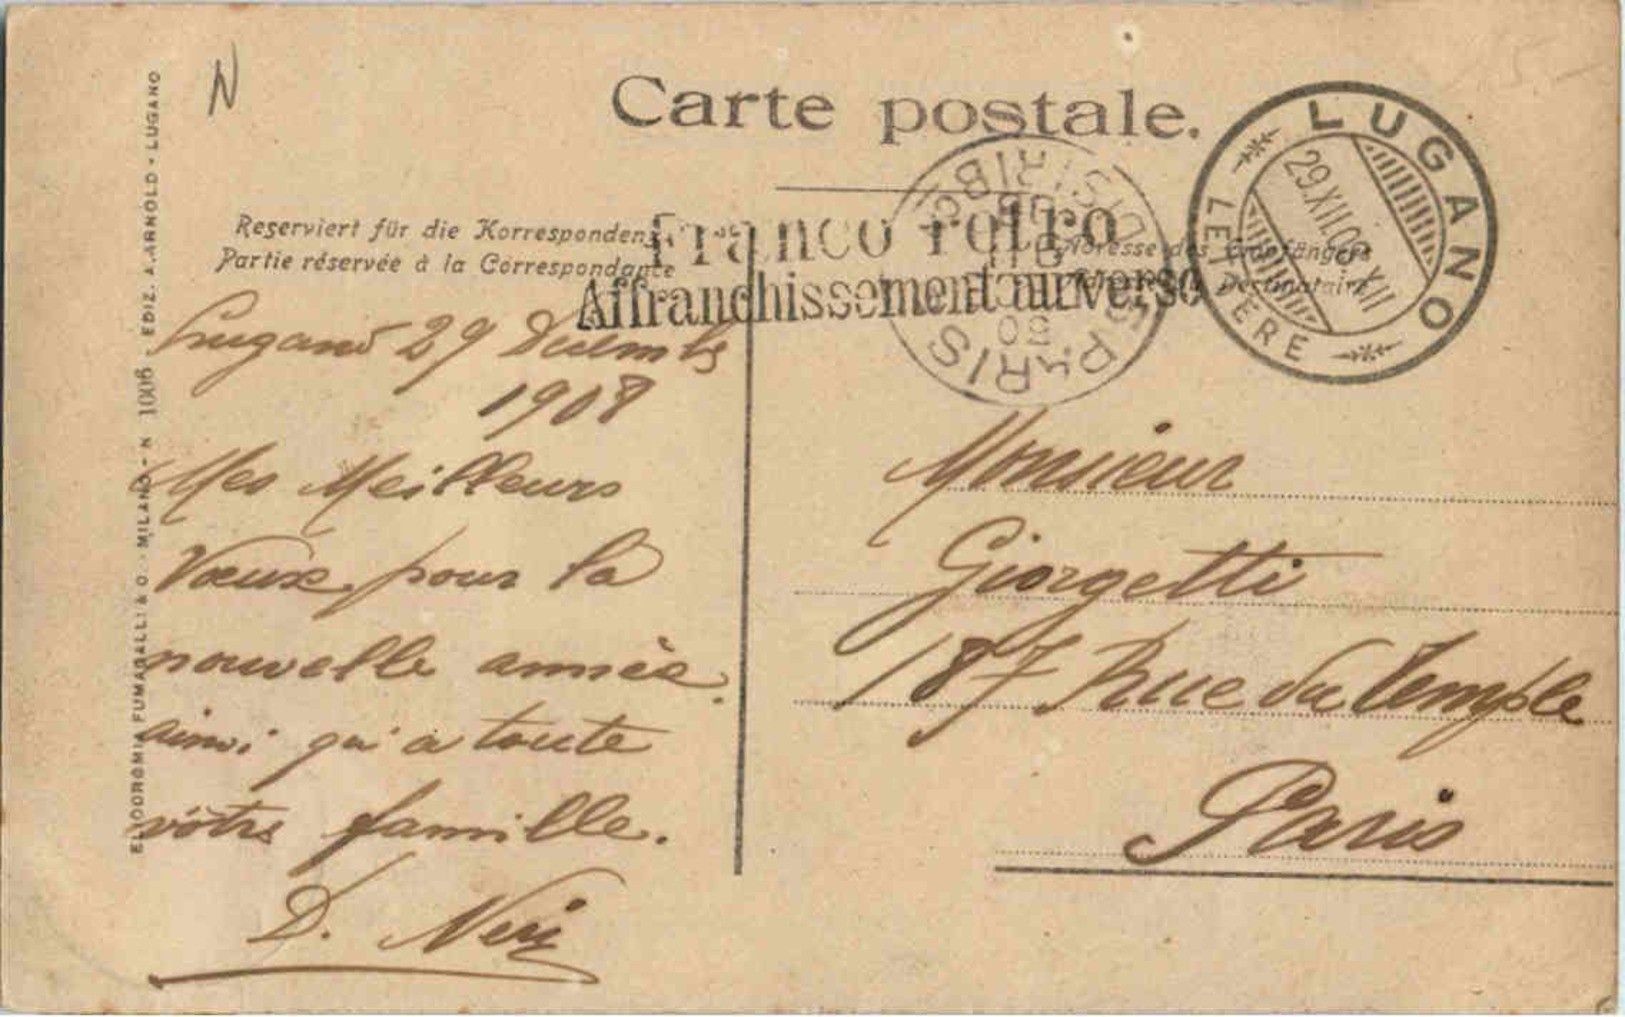 N
Carte postale.
LUGANO
29.XII.08 XII
LETTERE
PARIS
DISTRIB
Franco retro
Affranchissement au verso
Reserviert für die Korrespondenz
Partie réservée à la Correspondance
Adresse des Empfängers
Destinataire
Lugano 29 Decembre
1908
Mes Meilleurs
Vœux pour la
nouvelle année.
ainsi qu'a toute
vôtre famille.
D. Neri
Monsieur
Giorgetti
187 Rue du Temple
Paris
ELIODROMIA FUMAGALLI & C. - MILANO - N 1006 - EDIZ. A. ARNOLD - LUGANO